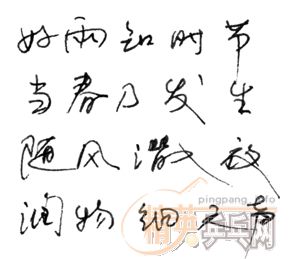 好雨知时节
当春乃发生
随风潜入夜
润物细无声
pingpang.info
精英乒乓网